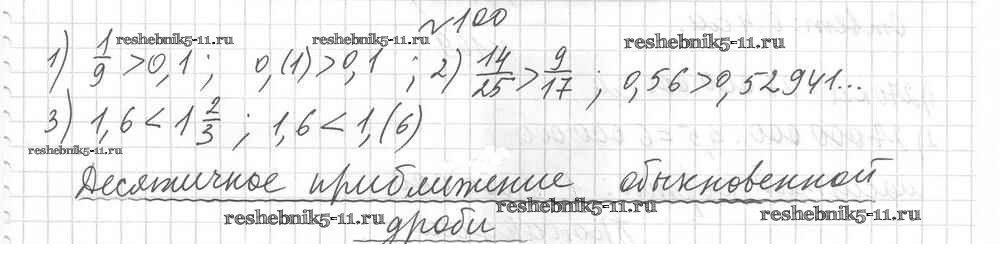 №100
reshebnik5-11.ru reshebnik5-11.ru reshebnik5-11.ru
1) 1/9 > 0,1 ; 0,(1) > 0,1 ; 2) 14/25 > 9/17 ; 0,56 > 0,52941...
3) 1,6 < 1 2/3 ; 1,6 < 1,(6)
reshebnik5-11.ru
Десятичное приближение обыкновенной
reshebnik5-11.ru reshebnik5-11.ru reshebnik5-11.ru
дроби